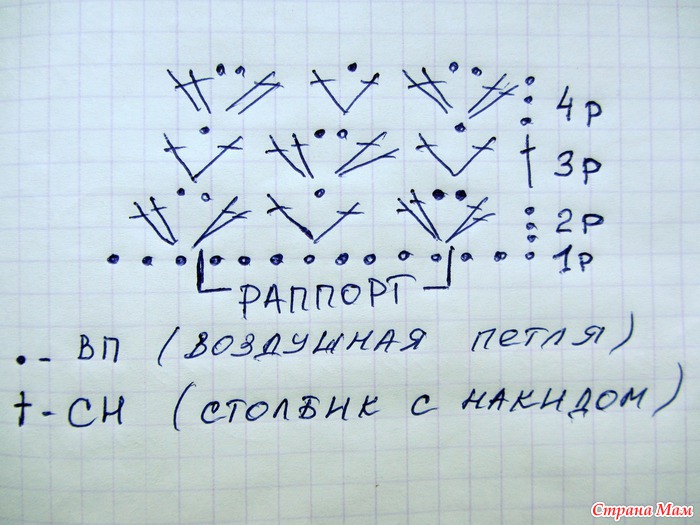 4Р
3Р
2Р
1Р
РАППОРТ
• - ВП (ВОЗДУШНАЯ ПЕТЛЯ)
† - СН (СТОЛБИК С НАКИДОМ)
Страна Мам